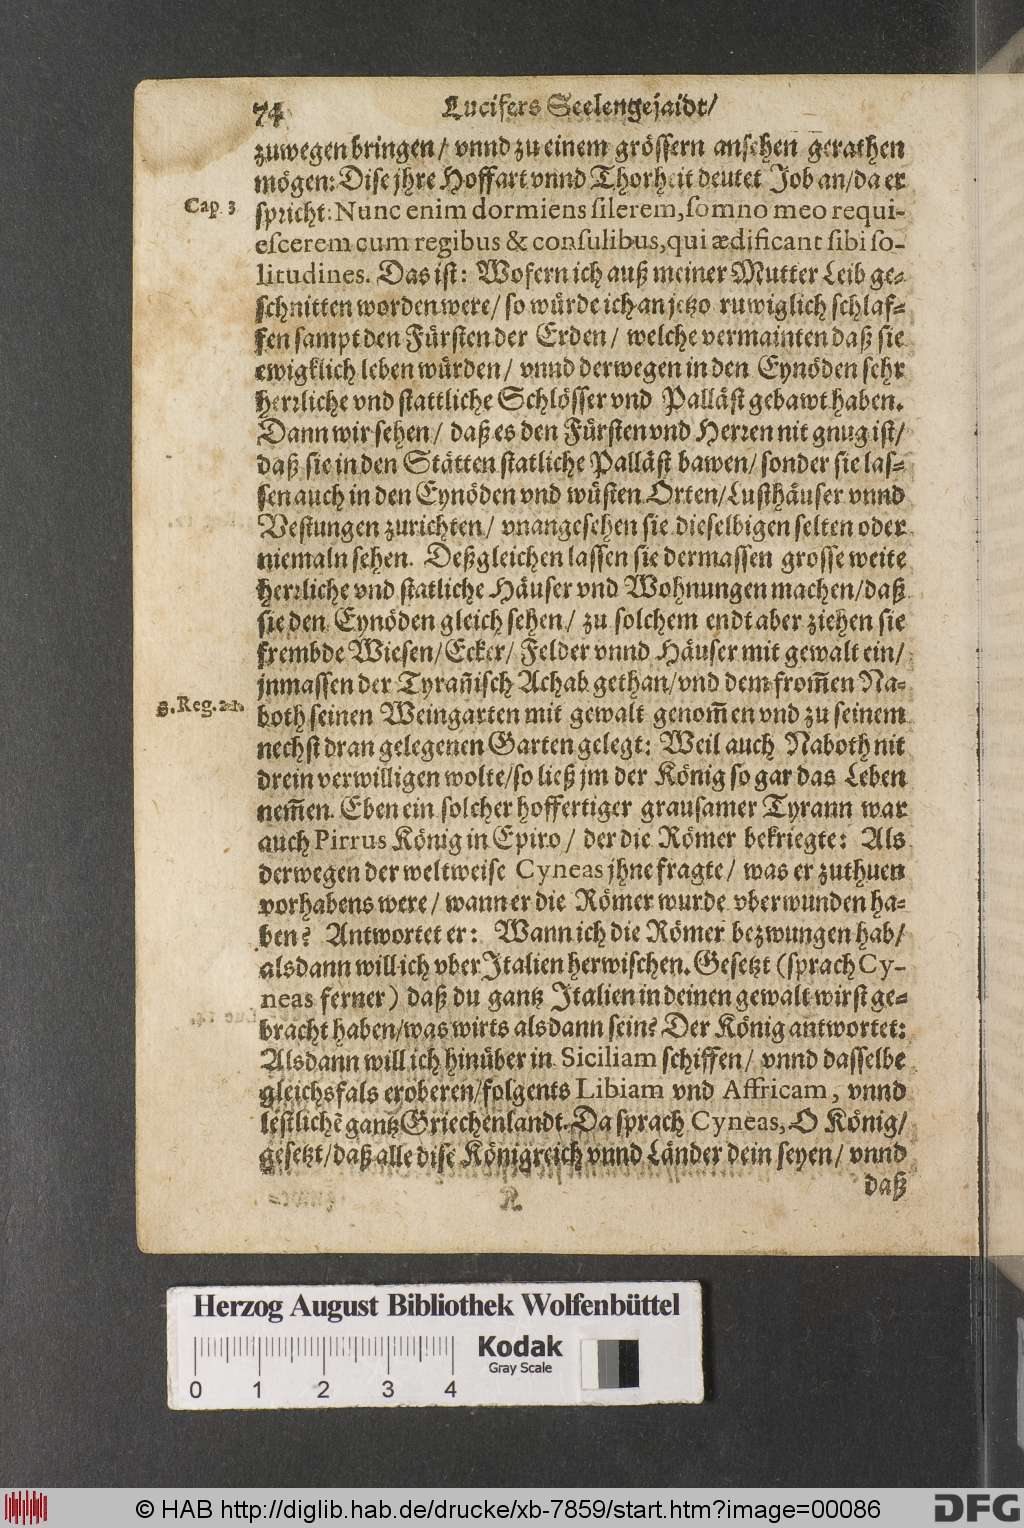 74 Lucifers Seelengejaidt/
zuwegen bringen/ vnnd zu einem grössern ansehen gerathen
mögen: Dise jhre Hoffart vnnd Thorheit deutet Job an/ da er
Cap. 3
spricht: Nunc enim dormiens silerem, somno meo requi-
escerem cum regibus & consulibus, qui ædificant sibi so-
litudines. Das ist: Wofern ich auß meiner Mutter Leib ge-
schnitten worden were/ so würde ich an jetzo ruwiglich schlaf-
fen sampt den Fürsten der Erden/ welche vermainten daß sie
ewigklich leben würden/ vnnd derwegen in den Eynöden sehr
herrliche vnd stattliche Schlösser vnd Palläst gebawt haben.
Dann wir sehen/ daß es den Fürsten vnd Herren nit gnug ist/
daß sie in den Stätten statliche Palläst bawen/ sonder sie las-
sen auch in den Eynöden vnd wüsten Orten/ Lusthäuser vnnd
Vestungen zurichten/ vnangesehen sie dieselbigen selten oder
niemaln sehen. Deßgleichen lassen sie dermassen grosse weite
herrliche vnd statliche Häuser vnd Wohnungen machen/ daß
sie den Eynöden gleich sehen/ zu solchem endt aber ziehen sie
frembde Wiesen/ Ecker/ Felder vnnd Häuser mit gewalt ein/
jnmassen der Tyrañisch Achab gethan/ vnd dem from̃en Na-
3. Reg. 21.
both seinen Weingarten mit gewalt genom̃en vnd zu seinem
nechst dran gelegenen Garten gelegt: Weil auch Naboth nit
drein verwilligen wolte/ so ließ jm der König so gar das Leben
nem̃en. Eben ein solcher hoffertiger grausamer Tyrann war
auch Pirrus König in Epiro/ der die Römer bekriegte: Als
derwegen der weltweise Cyneas jhne fragte/ was er zuthuen
vorhabens were/ wann er die Römer wurde vberwunden ha-
ben? Antwortet er: Wann ich die Römer bezwungen hab/
alsdann will ich vber Italien herwischen. Gesetzt (sprach Cy-
neas ferner) daß du gantz Italien in deinen gewalt wirst ge-
bracht haben/ was wirts alsdann sein? Der König antwortet:
Alsdann will ich hinüber in Siciliam schiffen/ vnnd dasselbe
gleichsfals eroberen/ folgents Libiam vnd Affricam, vnnd
lestlichē gantz Griechenlandt. Da sprach Cyneas, O König/
gesetzt/ daß alle dise Königreich vnnd Länder dein seyen/ vnnd
daß
Herzog August Bibliothek Wolfenbüttel
Kodak
Gray Scale
0 1 2 3 4
© HAB http://diglib.hab.de/drucke/xb-7859/start.htm?image=00086
DFG